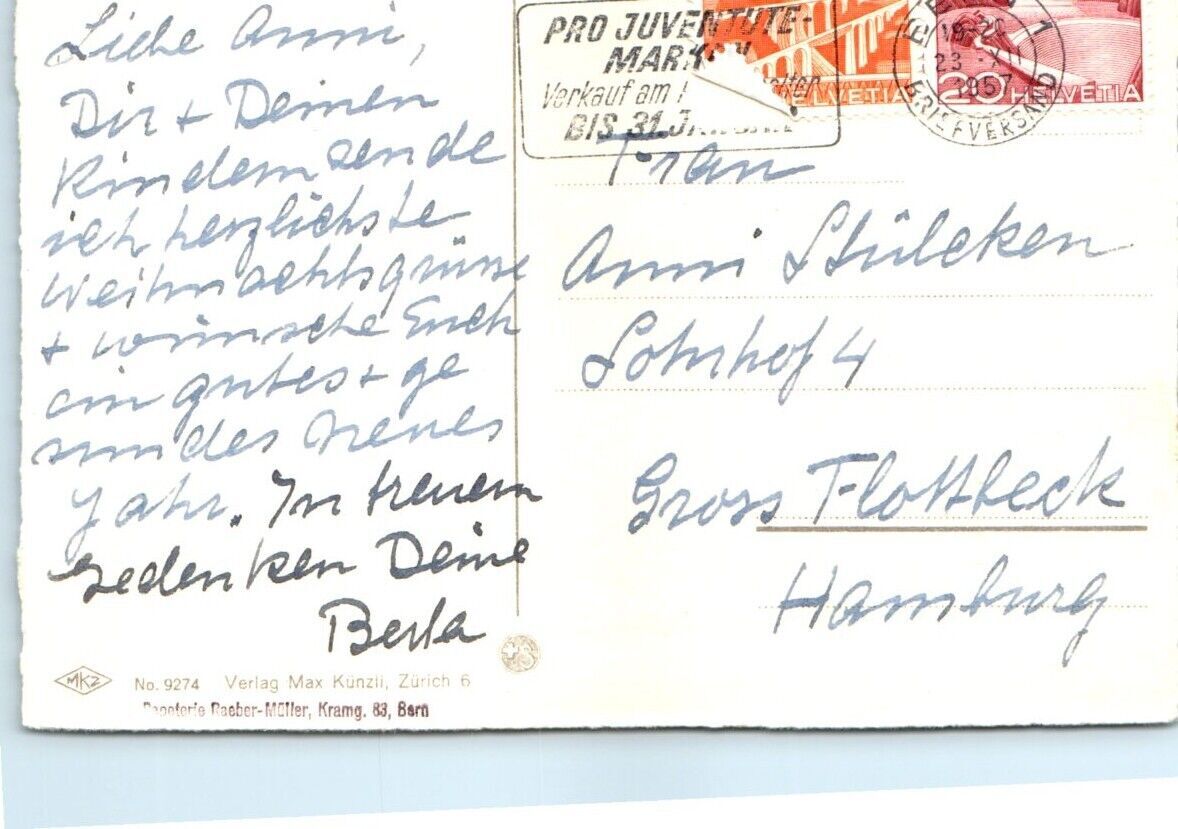 Liebe Anni,
Dir + Deinen
Kindern sende
ich herzlichste
Weihnachtsgrüsse
+ wünsche Euch
ein gutes + ge
sundes neues
Jahr. In treuem
Gedenken Deine
Berta
PRO JUVENTUTE-
MARK
Verkauf am
BIS 31. JA
HELVETIA
20 HELVETIA
1
18-20
23. XII
1957
BRIEFVERSAND
Frau
Anni Stülcken
Lohnhof 4
Gross Flottbeck
Hamburg
MKZ
No. 9274 Verlag Max Künzli, Zürich 6
Papeterie Raeber-Müller, Kramg. 83, Bern